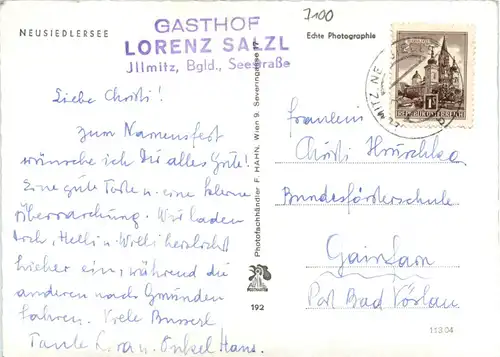 NEUSIEDLERSEE
GASTHOF
LORENZ SALZL
Jllmitz, Bgld., Seestraße
7100
Echte Photographie
REPUBLIK ÖSTERREICH
Liebe Christi!
Zum Namensfest
wünsche ich Dir alles Gute!
Eine gute Torte u. eine kleine
Überraschung. Wir laden
Dich, Helli u. Willi herzlichst
hieher ein, während die
anderen nach Gmünden
fahren. Viele Busserl
Tante u. Onkel Hans.
Photofachhändler F. HAHN, Wien 9, Severingasse 17
192
Fräulein
Christi Hruschka
Bundesförsterschule
Gainfarn
Post Bad Vöslau
11304